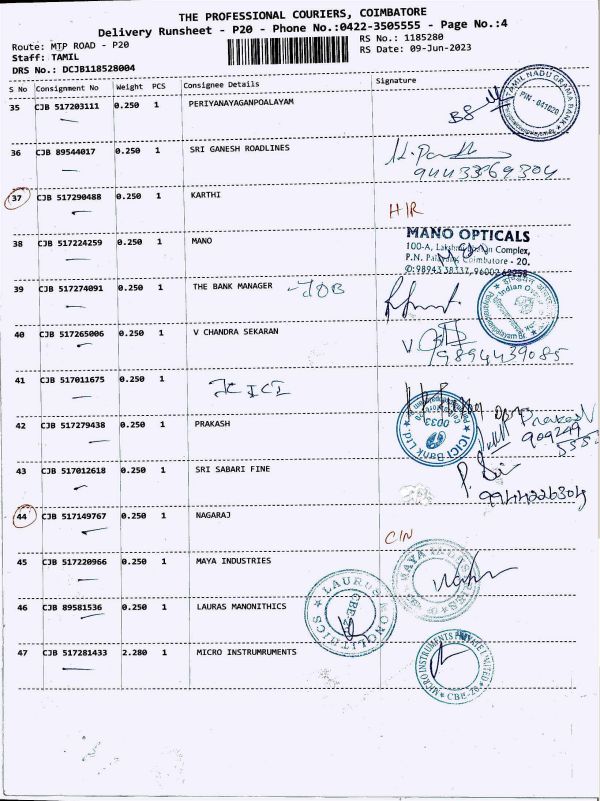 THE PROFESSIONAL COURIERS, COIMBATORE
Delivery Runsheet - P20 - Phone No.:0422-3505555 - Page No.:4
Route: MTP ROAD - P20
RS No.: 1185280
Staff: TAMIL
RS Date: 09-Jun-2023
DRS No.: DCJB118528004
S No Consignment No Weight PCS Consignee Details Signature
35 CJB 517203111 0.250 1 PERIYANAYAGANPOALAYAM
TAMIL NADU GRAMA BANK
PIN - 641020
36 CJB 89544017 0.250 1 SRI GANESH ROADLINES
9443369304
37 CJB 517290488 0.250 1 KARTHI
H/R
38 CJB 517224259 0.250 1 MANO
MANO OPTICALS
100-A, Complex,
P.N. Coimbatore - 20.
39 CJB 517274091 0.250 1 THE BANK MANAGER IOB
40 CJB 517265006 0.250 1 V CHANDRA SEKARAN
9894439085
41 CJB 517011675 0.250 1 ICICI
ICICI Bank Ltd.
0033
42 CJB 517279438 0.250 1 PRAKASH
Prakash
43 CJB 517012618 0.250 1 SRI SABARI FINE
9944226304
44 CJB 517149767 0.250 1 NAGARAJ
C/N
45 CJB 517220966 0.250 1 MAYA INDUSTRIES
MAYA INDUSTRIES
46 CJB 89581536 0.250 1 LAURAS MANONITHICS
LAURUS MONOLITHICS
47 CJB 517281433 2.280 1 MICRO INSTRUMRUMENTS
MICRO INSTRUMENTS PRIVATE LIMITED
CBE-20